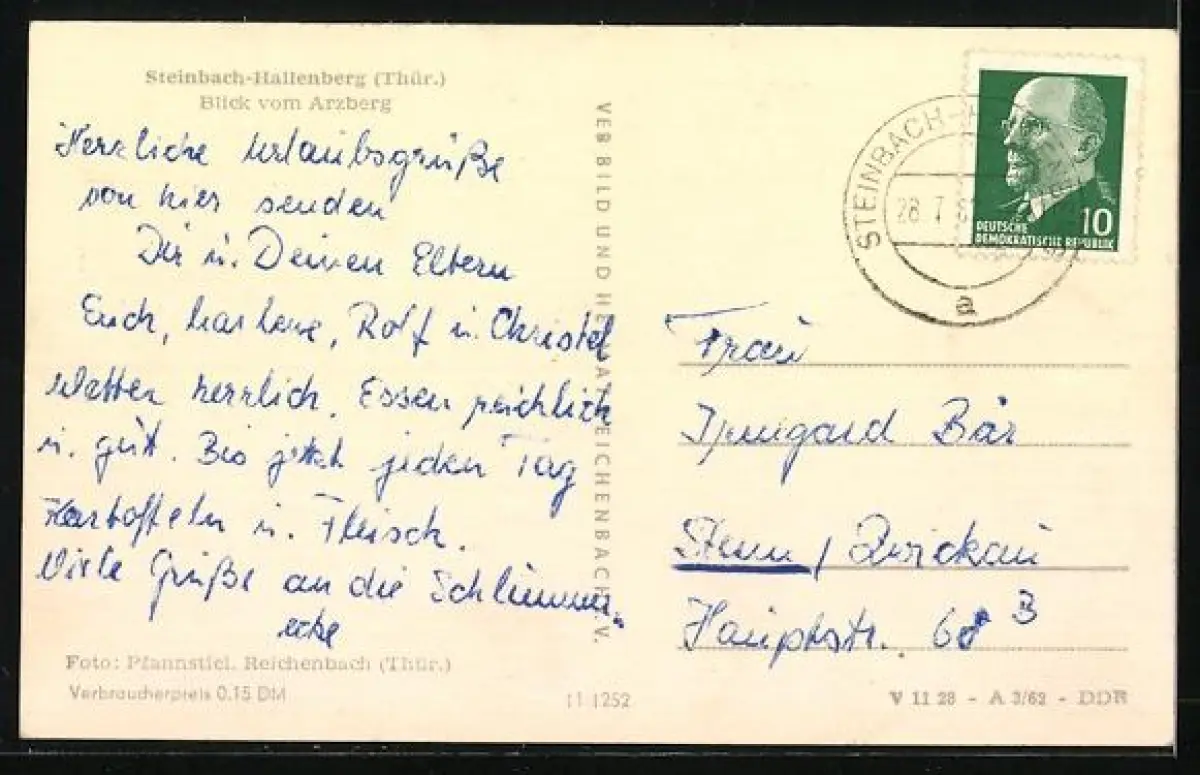 Steinbach-Hallenberg (Thür.)
Blick vom Arzberg
Herzliche Urlaubsgrüße
von hier senden
Dir u. Deinen Eltern
Euch, Rolf u. Christel
Wetter herrlich. Essen reichlich
u. gut. Bis jetzt jeden Tag
Kartoffeln u. Fleisch.
Viele Grüße an die Schlummer-
ecke
Foto: Pfannstiel, Reichenbach (Thür.)
Verbraucherpreis 0.15 DM
VEB BILD UND HEIMAT REICHENBACH I. V.
11 1252
STEINBACH-H
28 7
a
DEUTSCHE
DEMOKRATISCHE REPUBLIK
10
Frau
Irmgard Bär
Stenn / Zwickau
Hauptstr. 68 B
V 11 28 - A 3/62 - DDR